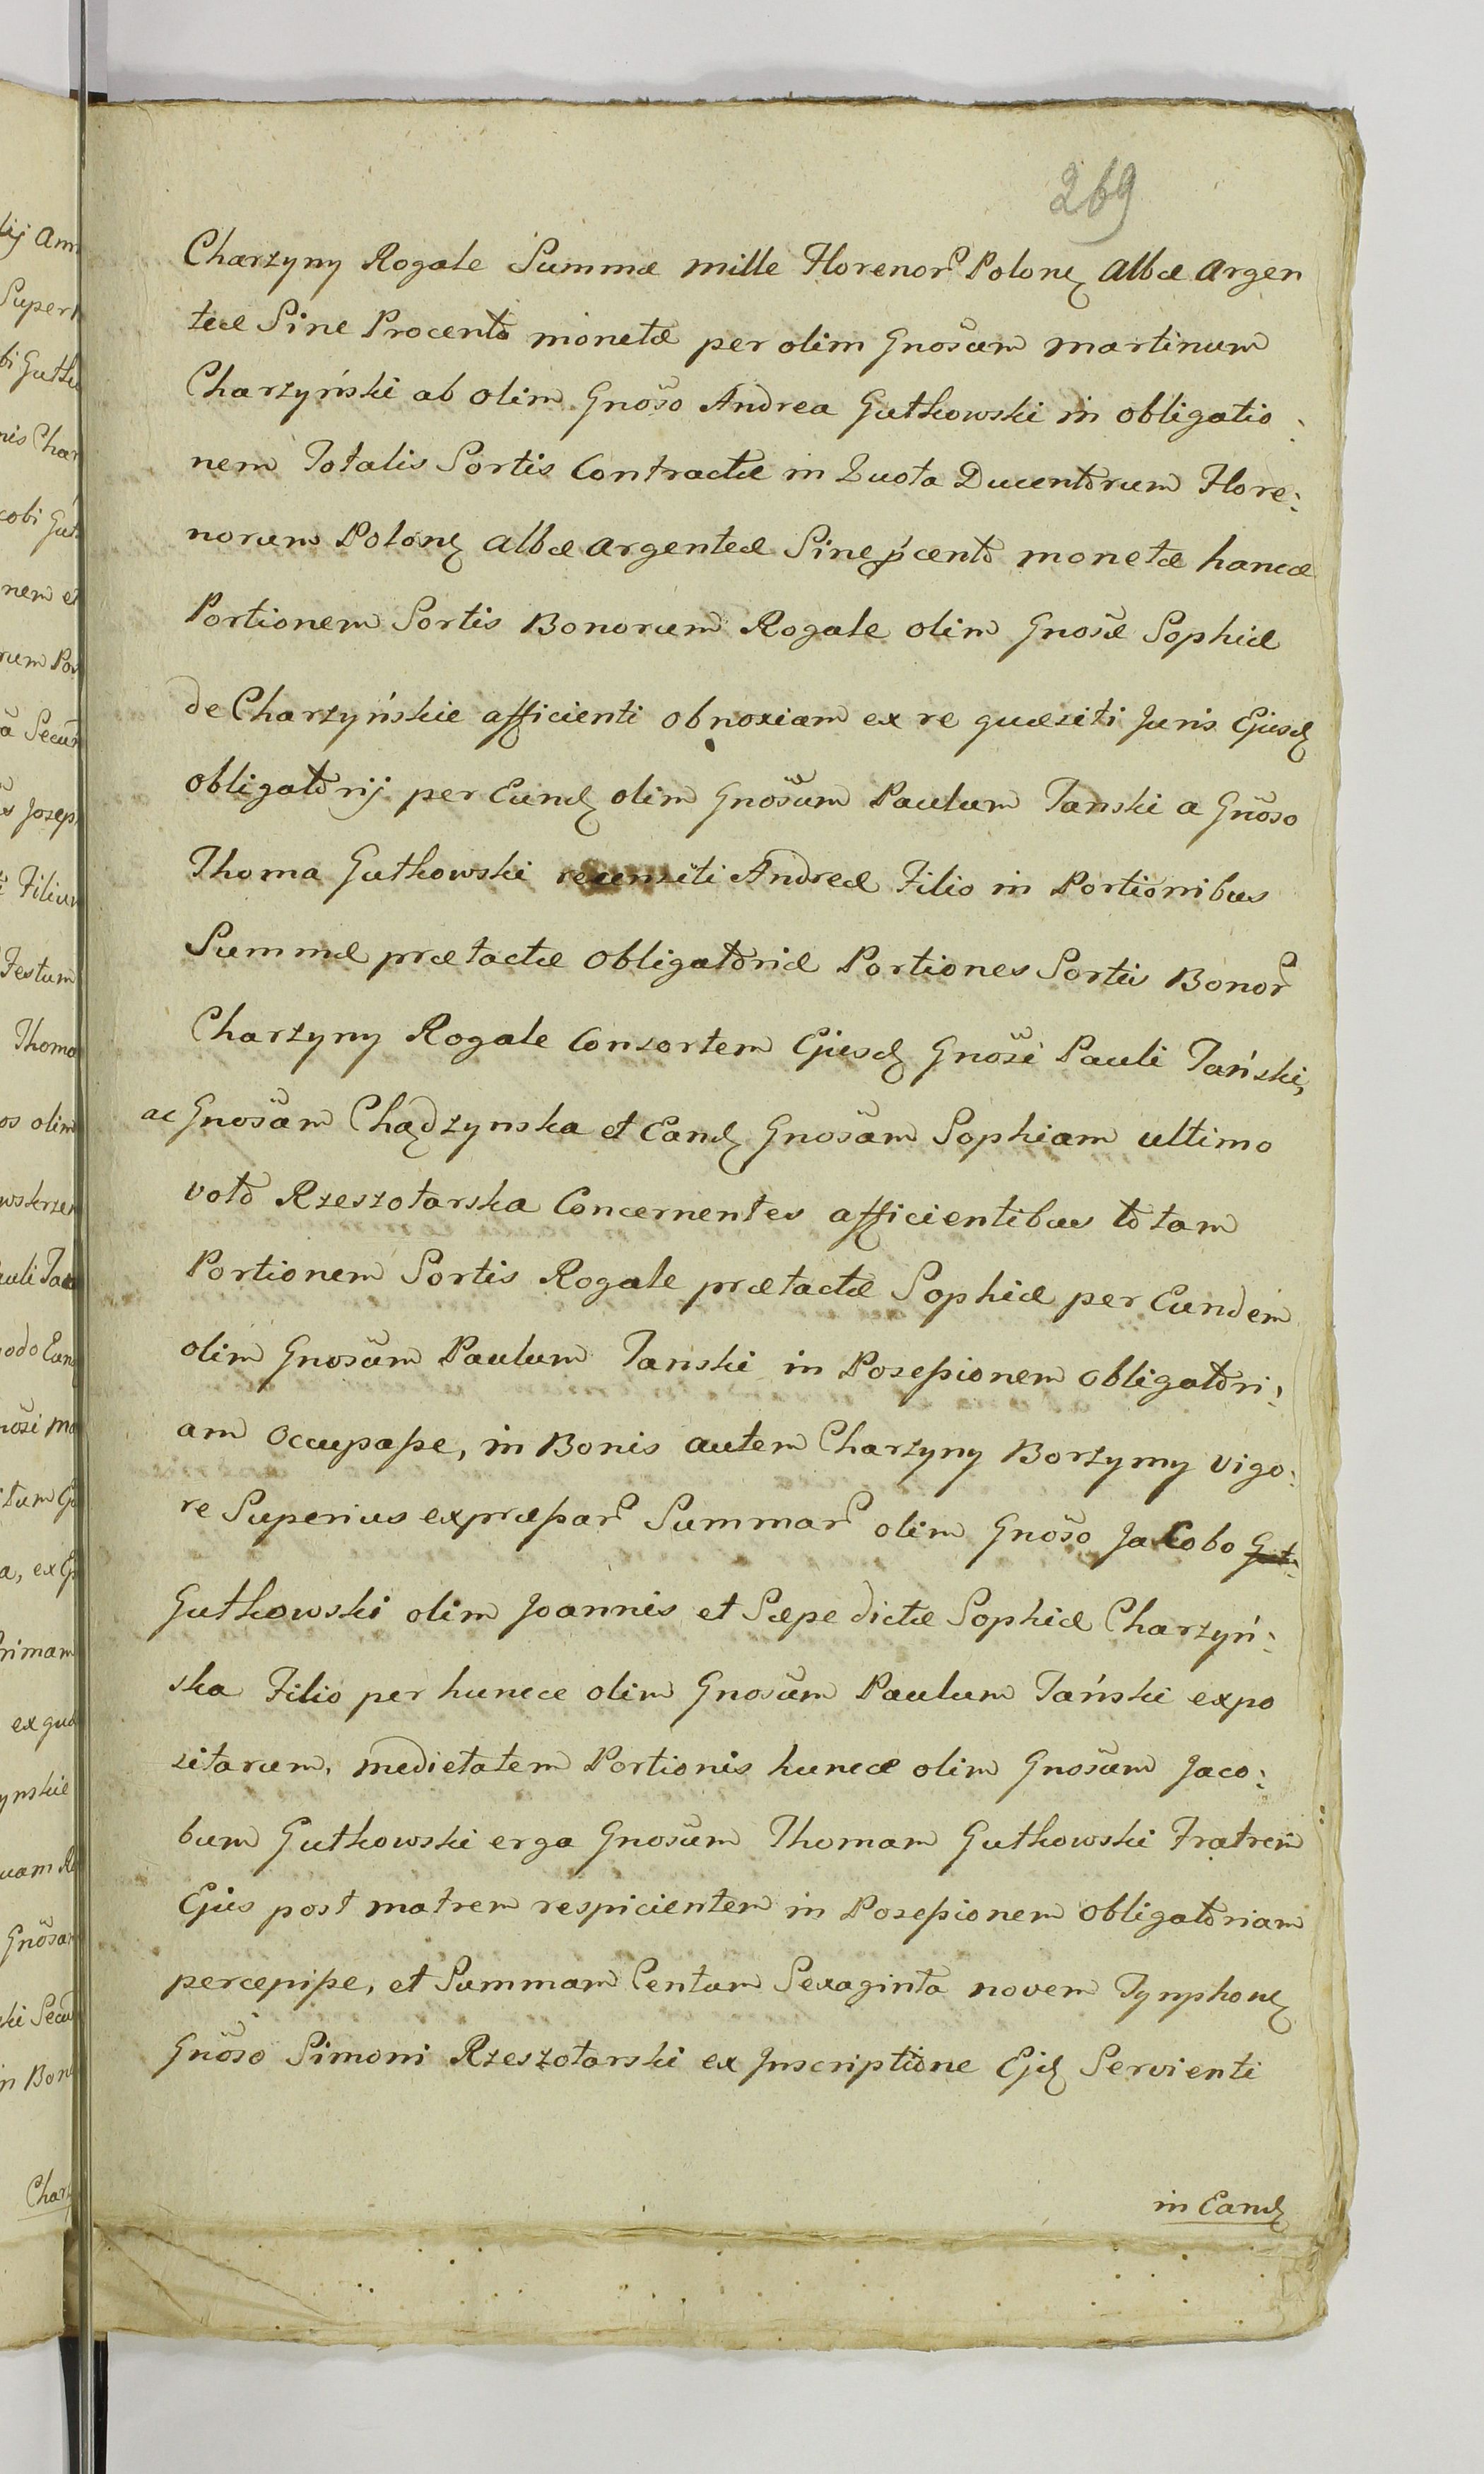 269
Charzyny Rogale Summæ mille Florenor Polonę albæ argen
teæ Sine Procento monetæ per olim Gnosum martinum
Charzyński ab olim Gnoso Andrea Gutkowski in obligatio:
nem Totalis Sortis Contractæ in Quota Ducentorum Flore:
norum Polonę albæ argenteæ Sine pcento monetæ hancce
Portionem Sortis Bonorum Rogale olim Gnosæ Sophiæ
de Charzyńskie afficienti obnoxiam ex re quæsiti Juris Ejusdę
obligatorij per Eundę olim Gnosum Paulum Tanski a Gnoso
Thoma Gutkowski recensiti Andreæ Filio in Portionibus
Summæ prætactæ obligatoriæ Portiones Sortis Bonor
Charzyny Rogale Consortem Ejusdę Gnosi Pauli Tański,
ac Gnosam Chądzynska et Eandę Gnosam Sophiam ultimo
voto Rzeszotarska Concernentes afficientibus totam
Portionem Sortis Rogale prætactæ Sophiæ per Eundem
olim Gnosum Paulum Tanski in Possessionem obligatori:
am Occupasse, in Bonis autem Charzyny Borzymy vigo:
re Superius expræssar Summar olim Gnoso Jacobo Gut:
Gutkowski olim Joannis et Sæpe dictæ Sophiæ Charzyń:
ska Filio per huncce olim Gnosum Paulum Tański expo
sitarum, medietatem Portionis huncce olim Gnosum Jaco:
bum Gutkowski erga Gnosum Thomam Gutkowski Fratrem
Ejus post matrem respicientem in Possessionem obligatoriam
percepisse, et Summam Centum Sexaginta novem Tynphonę
Gnoso Simoni Rzeszotarski ex Inscriptione Ejdę Servienti
in Eandę